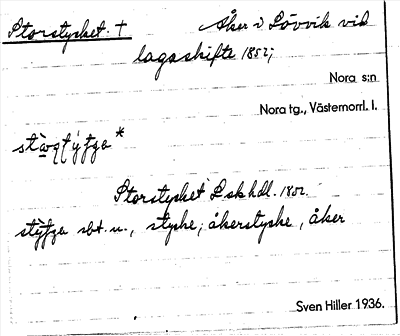 Storstycket. † Åker i Lövvik vid
lagaskifte 1852;
Nora s:n
Nora tg., Västernorrl. l.
Storstycket Lskhdl. 1852.
sbt. n., stycke; åkerstycke, åker
Sven Hiller 1936.